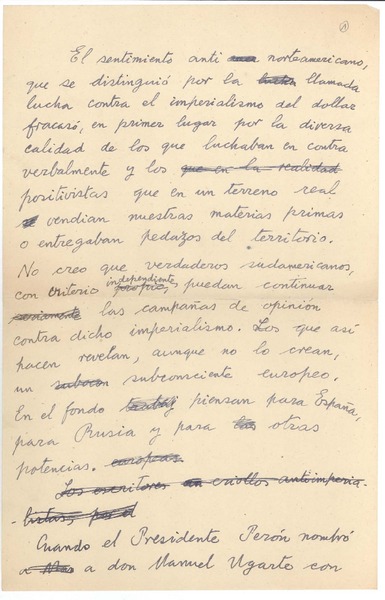 1
El sentimiento anti norteamericano,
que se distinguió por la lucha llamada
lucha contra el imperialismo del dollar
fracasó, en primer lugar por la diversa
calidad de los que luchaban en contra
verbalmente y los que en la realidad
positivistas que en un terreno real
vendian nuestras materias primas
o entregaban pedazos del territorio.
No creo que verdaderos sudamericanos,
independiente,
con criterio propio, puedan continuar
seriamente las campañas de opinión
contra dicho imperialismo. Los que así
hacen revelan, aunque no lo crean,
un subcon subconsciente europeo.
En el fondo piensan para España,
para Rusia y para las otras
potencias. europeas
Los escritores criollos antiimperia-
listas, por el
Cuando el Presidente Perón nombró
a a don Manuel Ugarte con